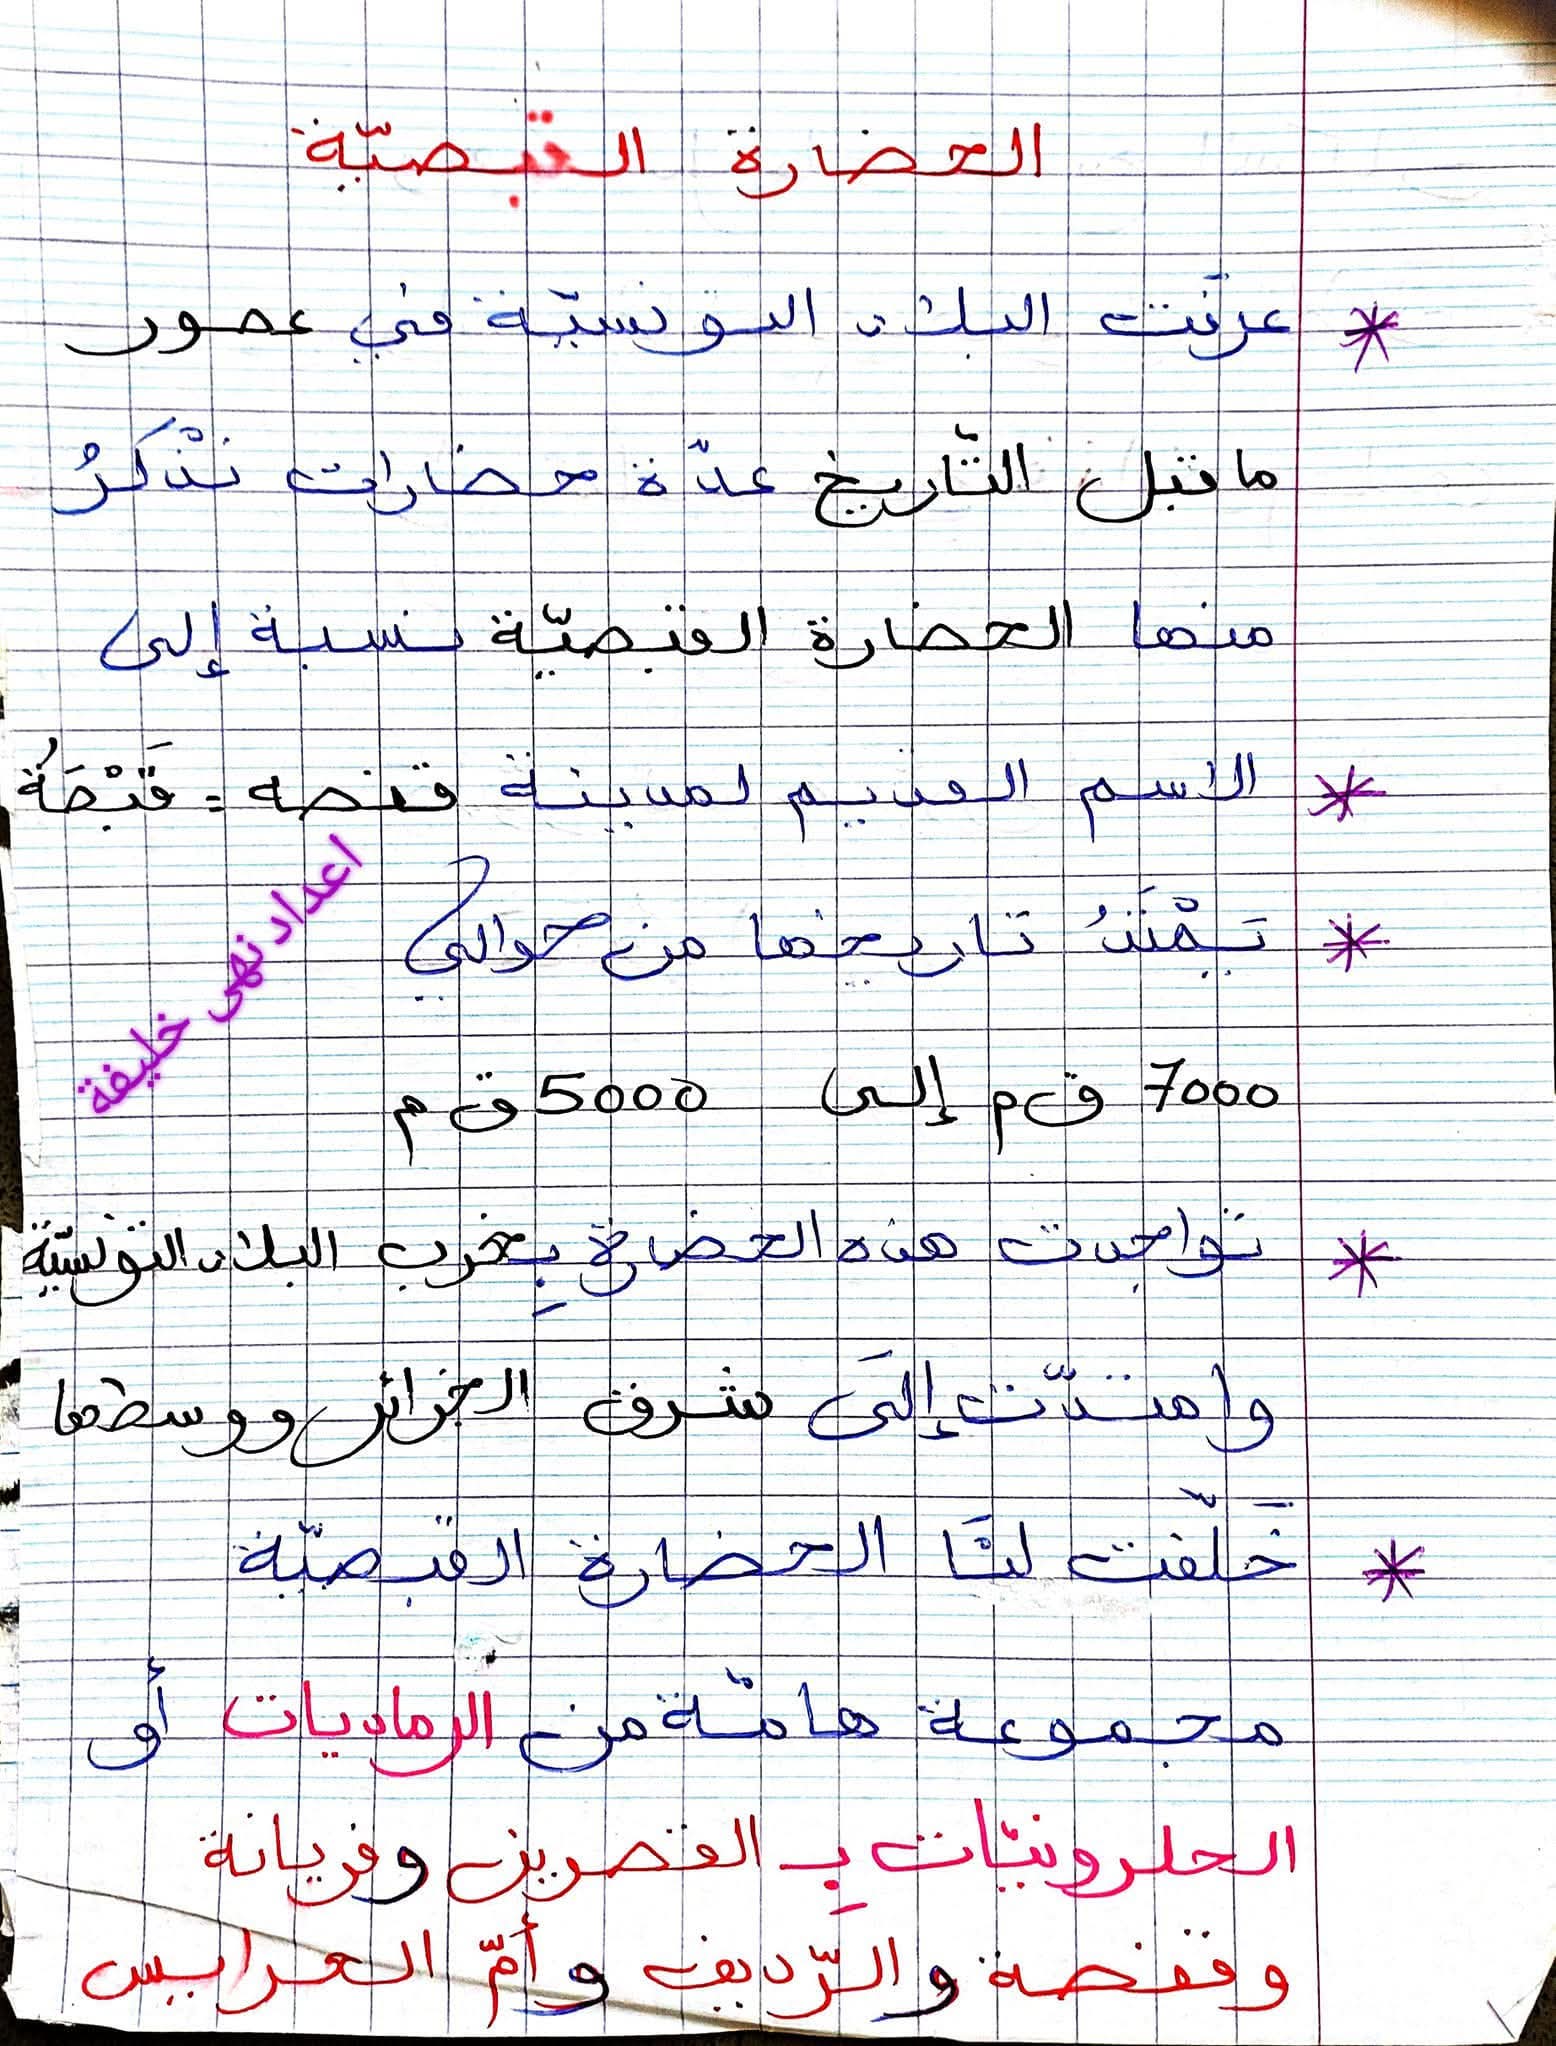 الحضارة القبصيّة
* عرفت البلاد التونسيّة في عصور
ما قبل التّاريخ عدّة حضارات نذْكرُ
منها الحضارة القبصيّة نسبة إلى
* الاسم القديم لمدينة قفصه = قَبْصَة
* يَمْتَدُ تاريخها من حوالي
7000 ق م إلى 5000 ق م
* تواجدت هذه الحضارة بِغرب البلاد التونسيّة
وامتدّت إلىَ شرق الجزائر ووسطها
* خَلّفت لنَا الحضارة القبصيّة
مجموعة هامّة من الرماديات أو
الحلزونيّات بِـ القصرين وفريانة
وقفصة والرّديف وأمّ العرايس
اعداد نهى خليفة